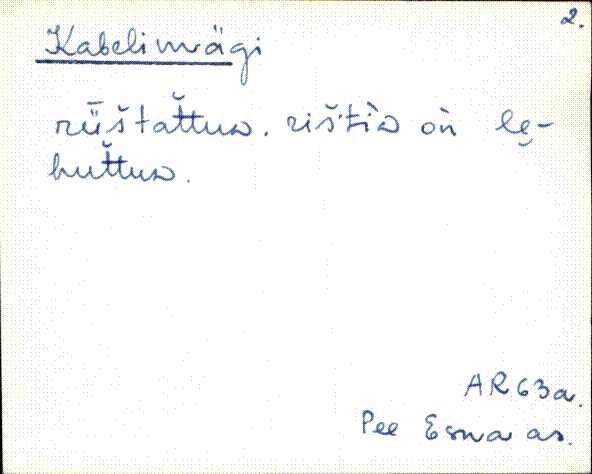 2.
Kabelimägi
rṻštat̆tuᴅ. rišt́iᴅ òn lɐ̮-
hut̆tuᴅ.
AR63a.
Pee Esna as.